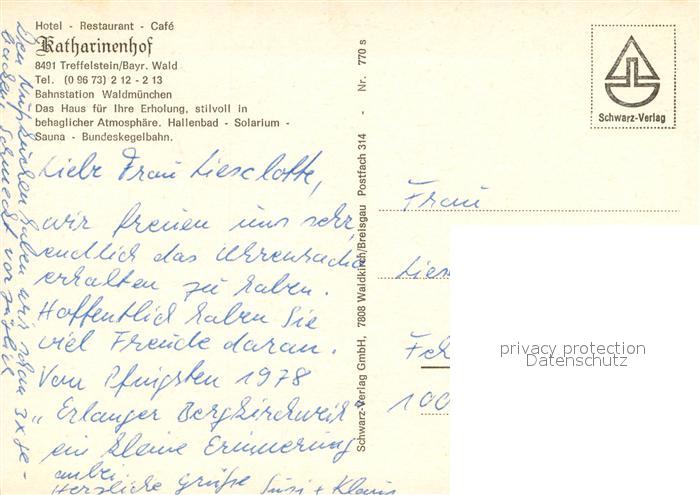 Hotel - Restaurant - Café
Katharinenhof
8491 Treffelstein/Bayr. Wald
Tel. (0 96 73) 2 12 - 2 13
Bahnstation Waldmünchen
Das Haus für Ihre Erholung, stilvoll in
behaglicher Atmosphäre. Hallenbad - Solarium -
Sauna - Bundeskegelbahn.
Liebe Frau Lieselotte,
wir freuen uns sehr,
endlich das
erhalten zu haben.
Hoffentlich haben Sie
viel Freude daran.
Von Pfingsten 1978
"Erlanger Bergkirchweih"
ein kleine Erinnerung
anbei.
Herzliche Grüße Susi + Klaus
Den haben wir schon 3x ge-
backen, schmeckt vorzüglich
Schwarz-Verlag GmbH, 7808 Waldkirch/Breisgau Postfach 314 - Nr. 770 s
Schwarz-Verlag
Frau
Lies
Fel
100
privacy protection
Datenschutz